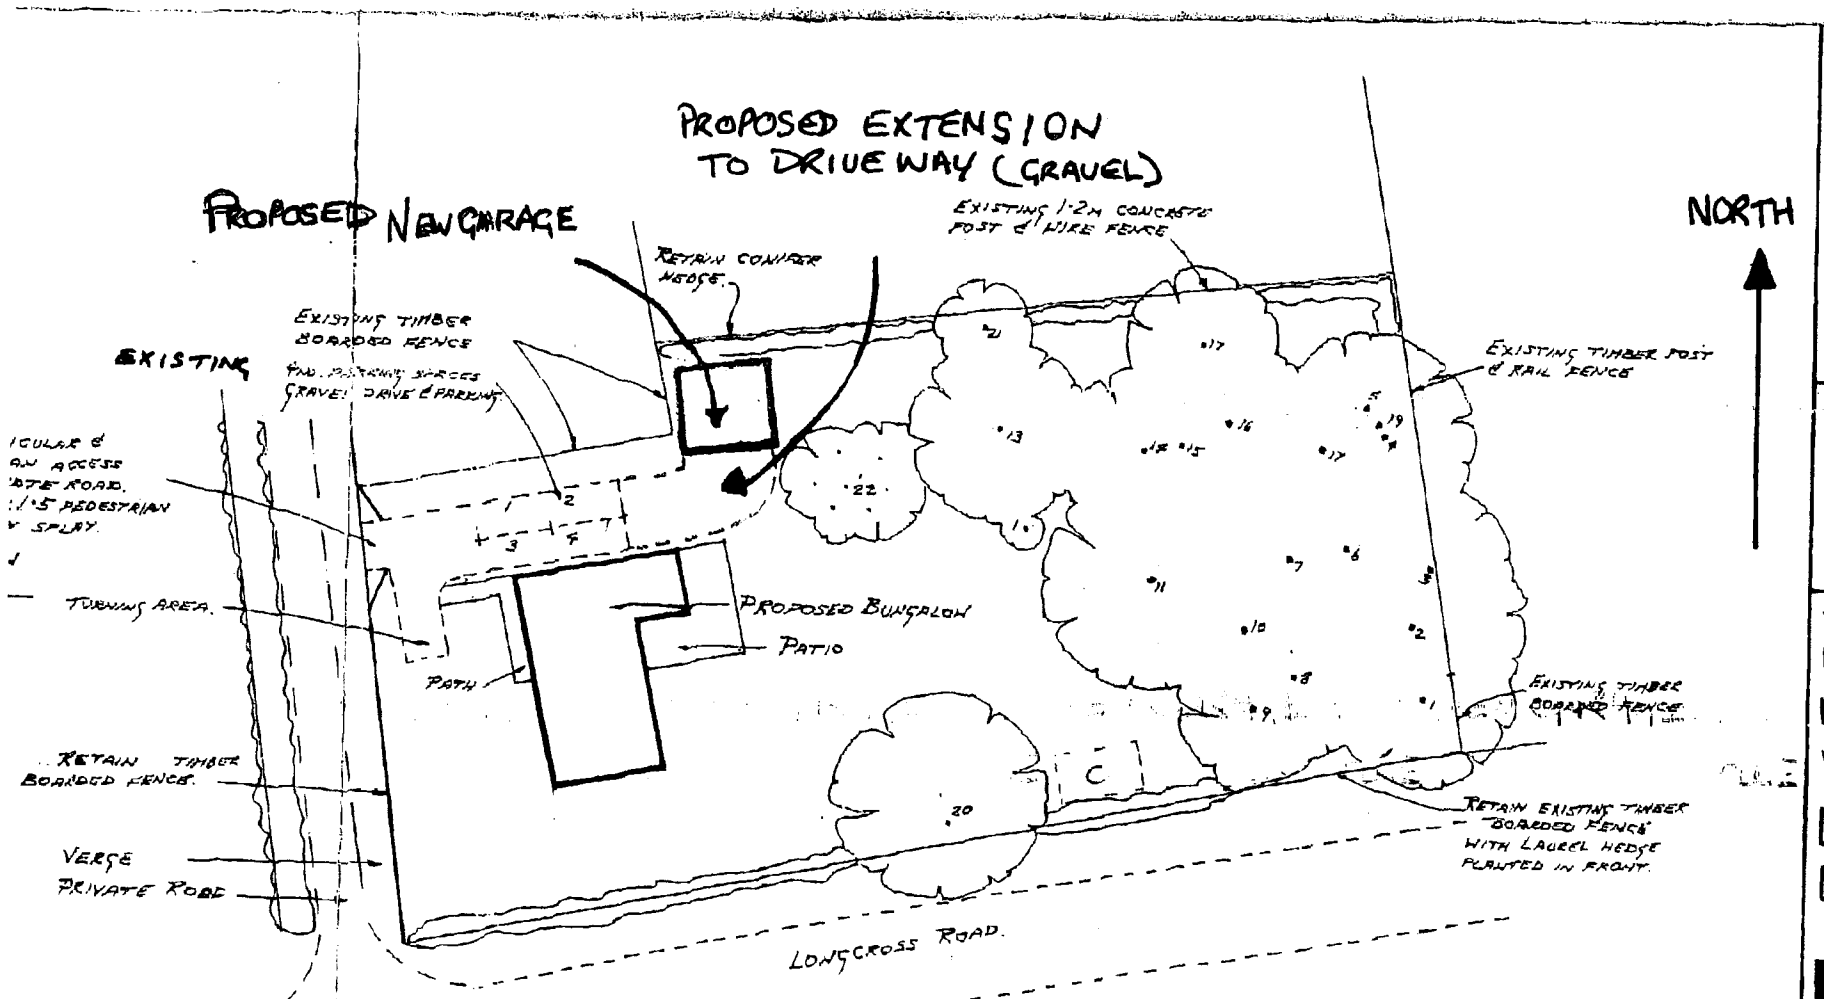 PROPOSED EXTENSION
TO DRIVEWAY (GRAVEL)
PROPOSED NEW GARAGE
NORTH
EXISTING 1·2M CONCRETE
POST & WIRE FENCE
RETAIN CONIFER
HEDGE.
EXISTING TIMBER
BOARDED FENCE
EXISTING
PARKING SPACES
GRAVEL DRIVE & PARKING
EXISTING TIMBER POST
& RAIL FENCE
ICULAR &
AN ACCESS
ATE ROAD.
1·5 PEDESTRIAN
SPLAY.
TURNING AREA.
PATH
PROPOSED BUNGALOW
PATIO
1
2
3
4
21
17
5
19
4
13
14
15
16
17
22
11
7
6
3
10
2
8
9
1
C
20
EXISTING TIMBER
BOARDED FENCE
RETAIN TIMBER
BOARDED FENCE.
RETAIN EXISTING TIMBER
BOARDED FENCE
WITH LAUREL HEDGE
PLANTED IN FRONT.
VERGE
PRIVATE ROAD
LONGCROSS ROAD.